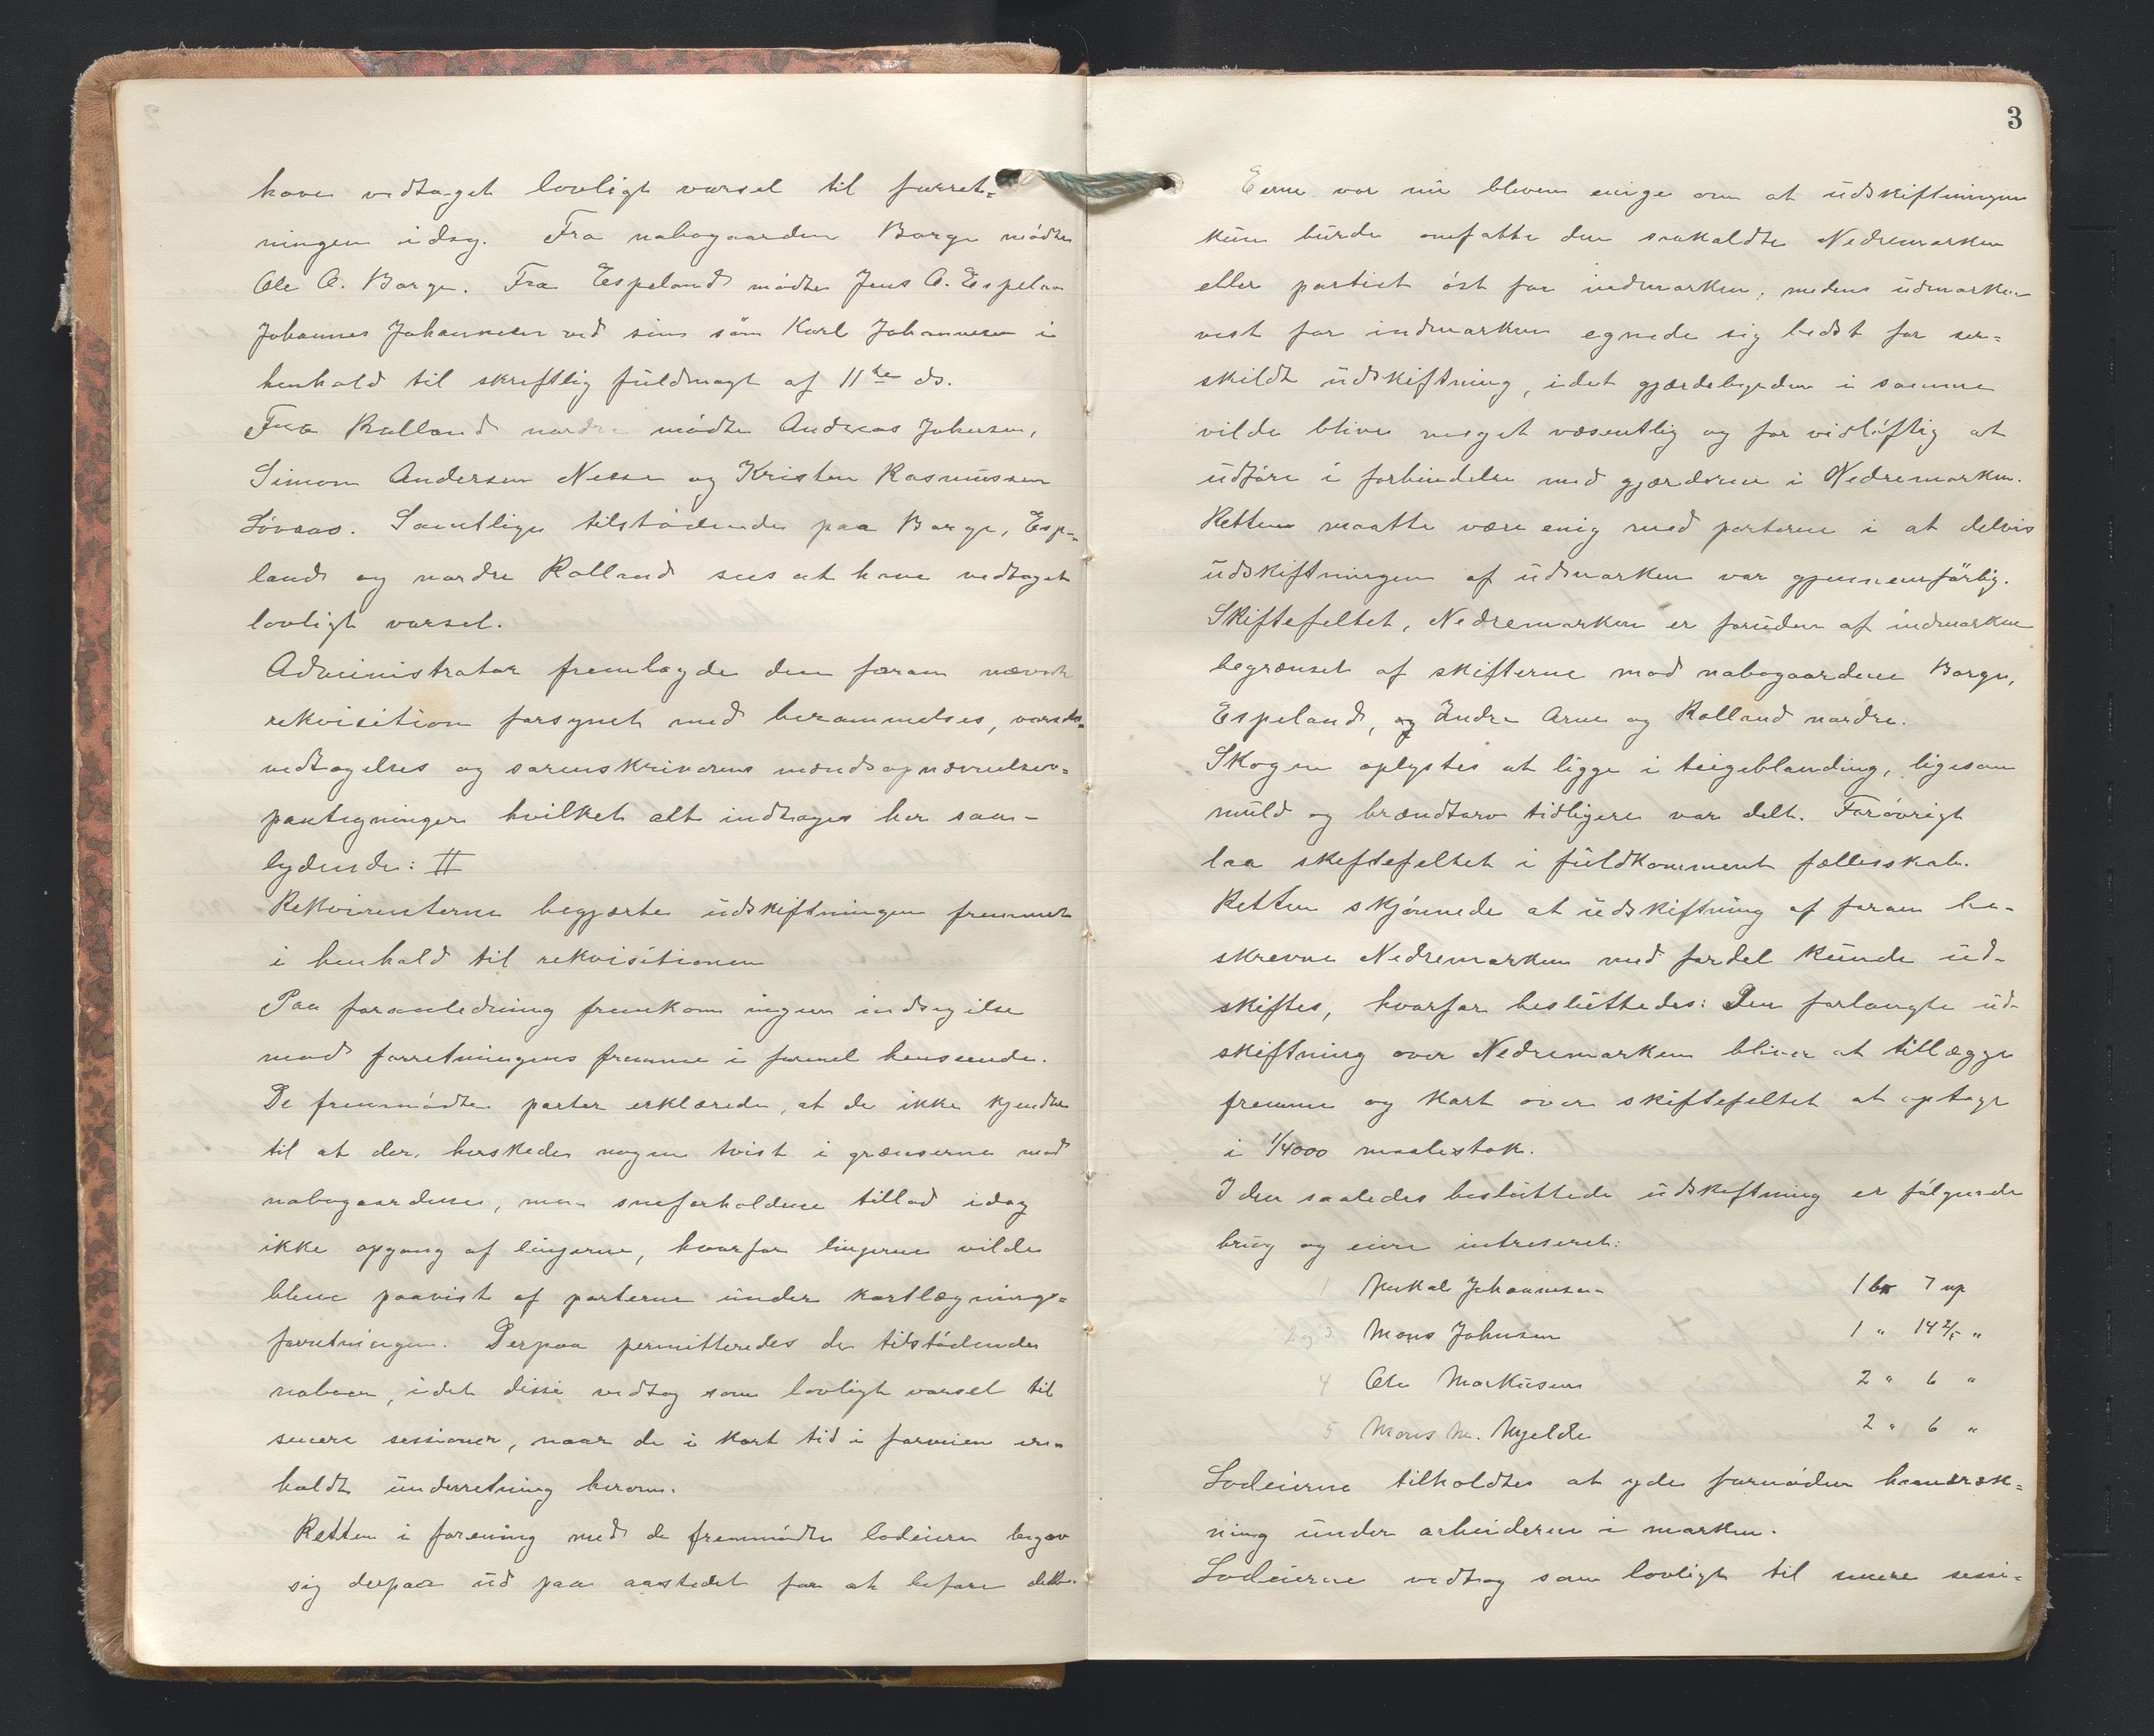 have vedtaget lovligt varsel til forret=
ningen idag. Fra nabogaarden Borge mødte
Ole O. Borge. Fra Espeland mødte Jens O. Espelan
Johannes Johannesen ved sin søn Karl Johannesen i
henhold til skriftlig fuldmagt af 11te ds.
Fra Rolland nordre mødte Andreas Johnsen,
Simon Andersen Nesse og Kristen Rasmussen
Løvaas. Samtlige tilstødende paa Borge, Espe=
land og nordre Rolland sees at have vedtaget
lovligt varsel.
Administrator fremlagde den foran nævnte
rekvisition forsynet med berammelses, varsels=
vedtagelses og sorenskriverens mændsopnævnelses=
paategninger hvilket alt indtages her saa=
lydende: II
Rekvirenterne begjærte udskiftningen fremmet
i henhold til rekvisitionen
Paa foranledning fremkom ingen indsigelse
mod forretningens fremme i formel henseende.
De fremmødte parter erklærede, at de ikke kjendte
til at der herskede nogen tvist i grænserne mod
nabogaardene, men sneforholdene tillod idag
ikke opgang af linjerne, hvorfor linjerne vilde
blive paavist af parterne under kartlægnings=
forretningen. Derpaa permitteredes de tilstødende
naboer, idet disse vedtog som lovligt varsel til
senere sessioner, naar de i kort tid i forveien er=
holdt underretning herom.
Retten i forening med de fremmødte lodeiere begav
sig derpaa ud paa aastedet for at befare dette.
3
Eierne var nu bleven enige om at udskiftningen
kun burde omfatte den saakaldte Nedremarken
eller partiet øst for indmarken, medens udmarken
vest for indmarken egnede sig bedst for sær=
skildt udskiftning, idet gjærdebyrden i samme
vilde blive meget væsentlig og for vidløftig at
udføre i forbindelse med gjærderne i Nedremarken.
Retten maatte være enig med parterne i at delvis
udskiftningen af udmarken var gjennemførlig.
Skiftefeltet, Nedremarken er foruden af indmarken
begrænset af skifterne mod nabogaardene Borge,
Espeland, og Indre Arne og Rolland nordre.
Skogen oplystes at ligge i teigeblanding, ligesom
muld og brændtorv tidligere var delt. Forøvrigt
laa skiftefeltet i fuldkomment fællesskab.
Retten skjønnede at udskiftning af foran be=
skrevne Nedremarken med fordel kunde ud=
skiftes, hvorfor besluttedes: Den forlangte ud=
skiftning over Nedremarken bliver at tillægge
fremme og kart over skiftefeltet at optage
i 1/4000 maalestok.
I den saaledes besluttede udskiftning er følgende
brug og eiere intreseret:
1 Mikal Johannesen 1 bk 7 up
2 og 3 Mons Johnsen 1 " 14 2/5 "
4 Ole Markusen 2 " 6 "
5 Mons M. Mjelde 2 " 6 "
Lodeierne tilholdtes at yde fornøden haandræk=
ning under arbeiderne i marken.
Lodeierne vedtog som lovligt til senere sessi=